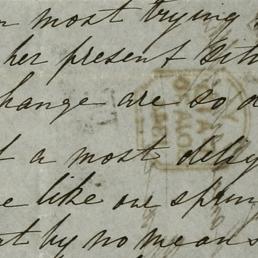 most trying
her present situ
change are so d
a most delig
like one sprun
at by no means